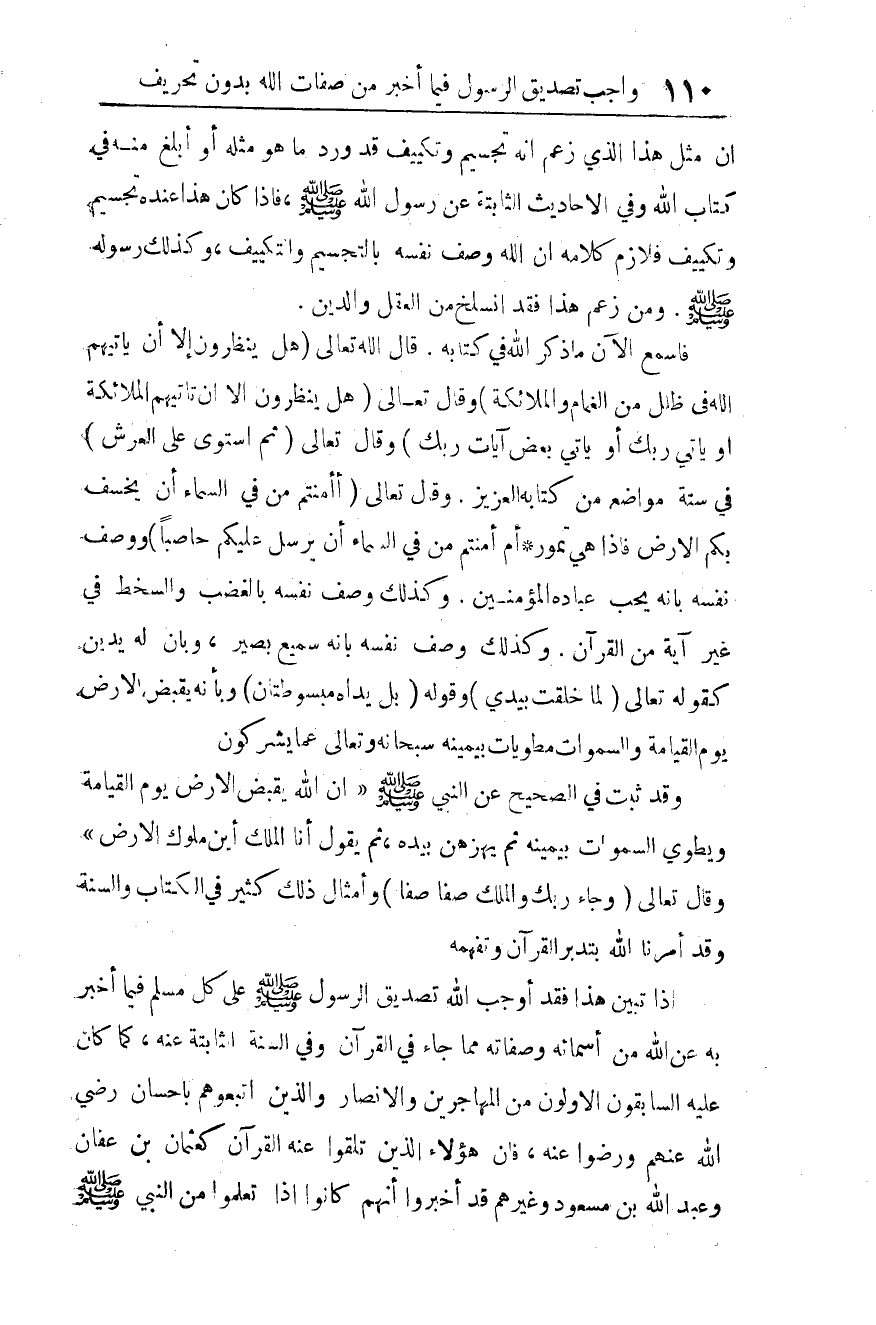 ١١٠ واجب تصديق الرسول فيما أخبر من صفات الله بدون تحريف
ان مثل هذا الذي زعم انه تجسيم وتكييف قد ورد ما هو مثله أو أبلغ منه في
كتاب الله وفي الاحاديث الثابتة عن رسول الله ﷺ ، فاذا كان هذا عنده تجسيم
وتكييف فلازم كلامه ان الله وصف نفسه بالتجسيم والتكييف ، وكذلك رسوله
ﷺ . ومن زعم هذا فقد انسلخ من العقل والدين .
فاسمع الآن ماذكر الله في كتابه . قال الله تعالى ( هل ينظرون إلا أن ياتيهم
الله فى ظلل من الغمام والملائكة ) وقال تعـالى ( هل ينظرون الا ان تاتيهم الملائكة
او ياتي ربك أو ياتي بعض آيات ربك ) وقال تعالى ( ثم استوى على العرش )
في ستة مواضع من كتابه العزيز . وقال تعالى ( أأمنتم من في السماء أن يخسف
بكم الارض فاذا هي تمور * أم أمنتم من في السماء أن يرسل عليكم حاصباً ) ووصف
نفسه بانه يحب عباده المؤمنـين . وكذلك وصف نفسه بالغضب والسخط في
غير آية من القرآن . وكذلك وصف نفسه بانه سميع بصير ، وبان له يدين
كقوله تعالى ( لما خلقت بيدي ) وقوله ( بل يداه مبسوطتان ) وبأنه يقبض الارض
يوم القيامة والسموات مطويات بيمينه سبحانه وتعالى عما يشركون
وقد ثبت في الصحيح عن النبي ﷺ « ان الله يقبض الارض يوم القيامة
ويطوي السموات بيمينه ثم يهزهن بيده ، ثم يقول أنا الملك أين ملوك الارض »
وقال تعالى ( وجاء ربك والملك صفا صفا ) وأمثال ذلك كثير في الكتاب والسنة
وقد أمرنا الله بتدبر القرآن وتفهمه
اذا تبين هذا فقد أوجب الله تصديق الرسول ﷺ على كل مسلم فيما أخبر
به عن الله من أسمائه وصفاته مما جاء في القرآن وفي السنة الثابتة عنه ، كما كان
عليه السابقون الاولون من المهاجرين والانصار والذين اتبعوهم باحسان رضي
الله عنهم ورضوا عنه ، فان هؤلاء الذين تلقوا عنه القرآن كعثمان بن عفان
وعبد الله بن مسعود وغيرهم قد أخبروا أنهم كانوا اذا تعلموا من النبي ﷺ